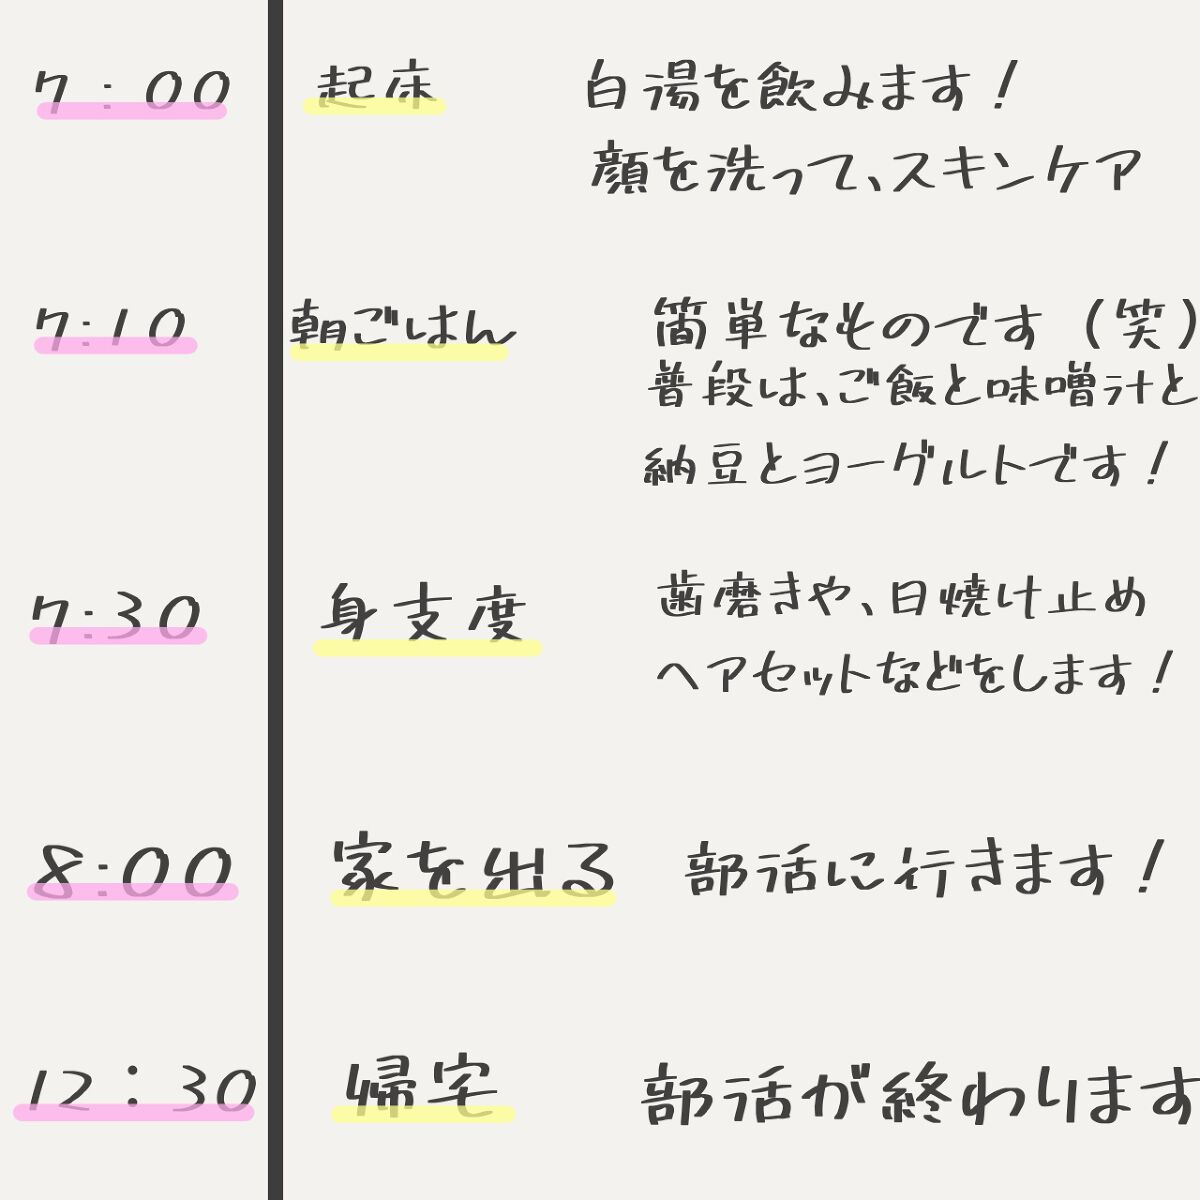 7:00 起床 白湯を飲みます！
顔を洗って、スキンケア
7:10 朝ごはん 簡単なものです（笑）
普段は、ご飯と味噌汁と
納豆とヨーグルトです！
7:30 身支度 歯磨きや、日焼け止め
ヘアセットなどをします！
8:00 家を出る 部活に行きます！
12:30 帰宅 部活が終わります